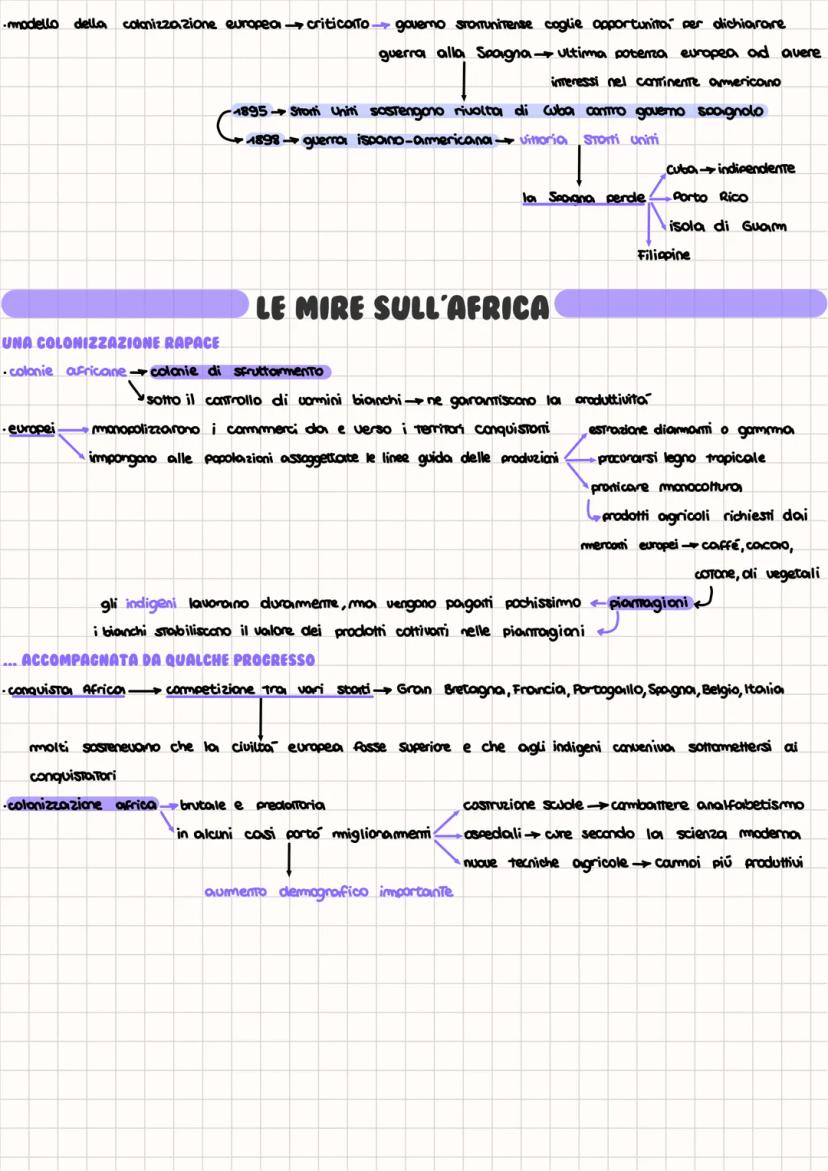 ·modello della colonizzazione europea → criticato → governo statunitense coglie opportunità per dichiarare
guerra alla Spagna → ultima potenza europea ad avere
interessi nel continente americano
1895 → Stati Uniti sostengono rivolta di Cuba contro governo spagnolo
1898 → guerra ispano-americana → vittoria Stati Uniti
Cuba → indipendente
la Spagna perde → Porto Rico
isola di Guam
Filippine
LE MIRE SULL'AFRICA
UNA COLONIZZAZIONE RAPACE
·colonie africane → colonie di sfruttamento
sotto il controllo di uomini bianchi → ne garantiscono la produttività
·europei → monopolizzarono i commerci da e verso i territori conquistati
estrazione diamanti o gomma
impongono alle popolazioni assoggettate le linee guida delle produzioni → procurarsi legno tropicale
praticare monocoltura
prodotti agricoli richiesti dai
mercati europei → caffé, cacao,
cotone, oli vegetali
gli indigeni lavorano duramente, ma vengono pagati pochissimo ← piantagioni
i bianchi stabiliscono il valore dei prodotti coltivati nelle piantagioni
... ACCOMPAGNATA DA QUALCHE PROGRESSO
·conquista Africa → competizione tra vari stati → Gran Bretagna, Francia, Portogallo, Spagna, Belgio, Italia
molti sostenevano che la civiltà europea fosse superiore e che agli indigeni conveniva sottomettersi ai
conquistatori
·colonizzazione africa → brutale e predatoria
costruzione scuole → combattere analfabetismo
in alcuni casi portó miglioramenti → ospedali → cure secondo la scienza moderna
nuove tecniche agricole → campi piú produttivi
aumento demografico importante